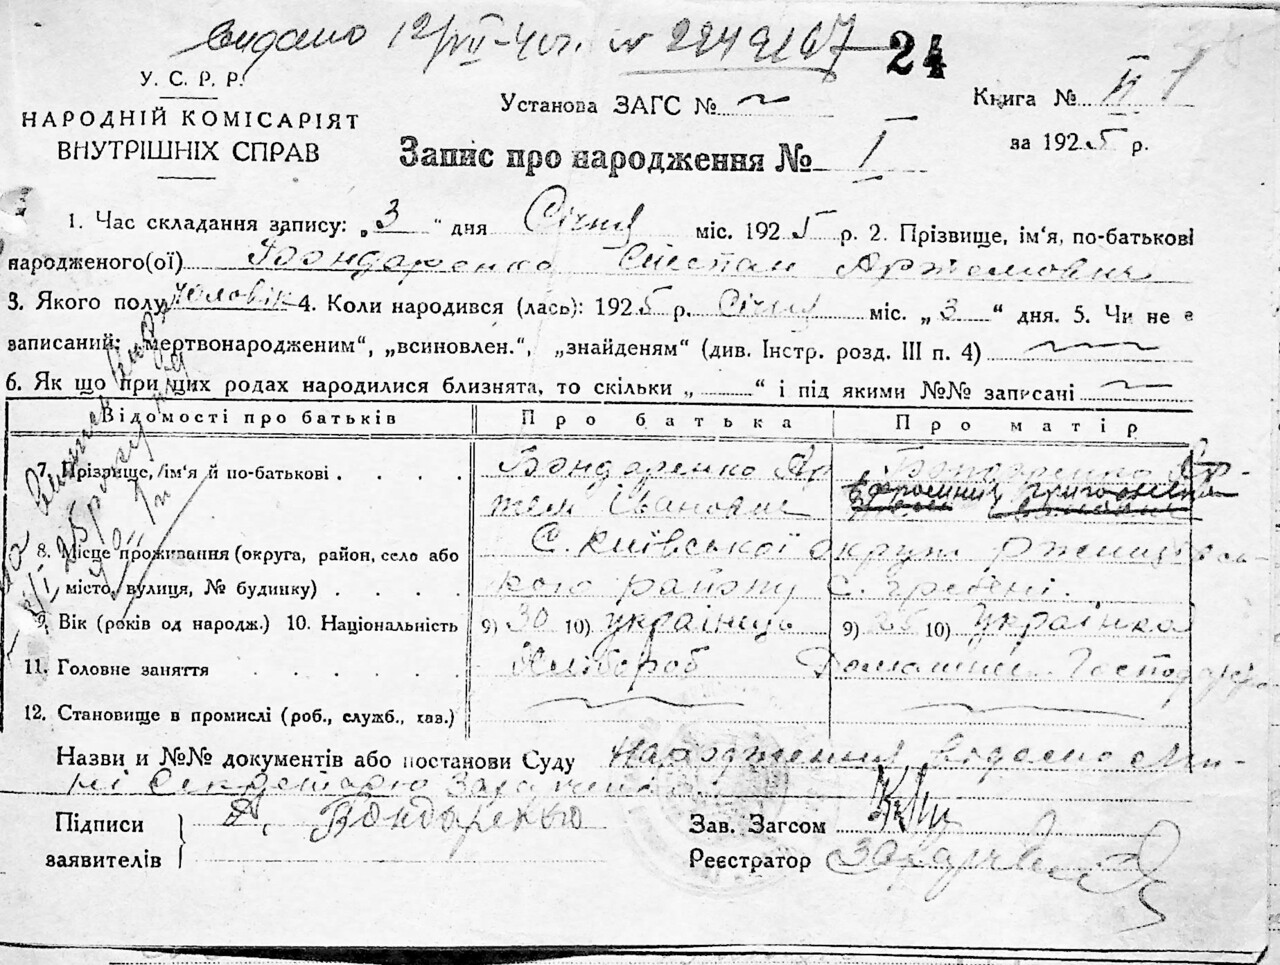 видано 12/VII-40г. № 2249167 24
У. С. Р. Р.
НАРОДНІЙ КОМІСАРІЯТ
ВНУТРІШНІХ СПРАВ
Установа ЗАГС №
Книга № II
за 1925 р.
Запис про народження № I
1. Час складання запису: „3“ дня Січня міс. 1925 р. 2. Прізвище, ім‘я, по-батькові
народженого(ої) Бондаренко Степан Артемович
3. Якого полу чоловік 4. Коли народився (лась): 1925 р. Січня міс. „3“ дня. 5. Чи не є
записаний: „мертвонародженим“, „всиновлен.“, „знайденям“ (див. Інстр. розд. III п. 4)
6. Як що при цих родах народилися близнята, то скільки „ “ і під якими №№ записані
Відомості про батьків Про батька Про матір
7. Прізвище, ім‘я й по-батькові Бондаренко Ар Бондаренко
тем Іванович Ефросинія Григорьевна
8. Місце проживання (округа, район, село або С. Київської округи Ржищівсь-
місто, вулиця, № будинку) кого району С. Гребені.
9. Вік (років од народж.) 10. Національність 9) 30 10) українець 9) 26 10) Українка
11. Головне заняття Хлібороб Домашнє Господар
12. Становище в промислі (роб., служб., хаз.)
Назви и №№ документів або постанови Суду Народження відомо
ні Секретарю
Підписи заявителів А. Бондаренко
Зав. Загсом
Реєстратор